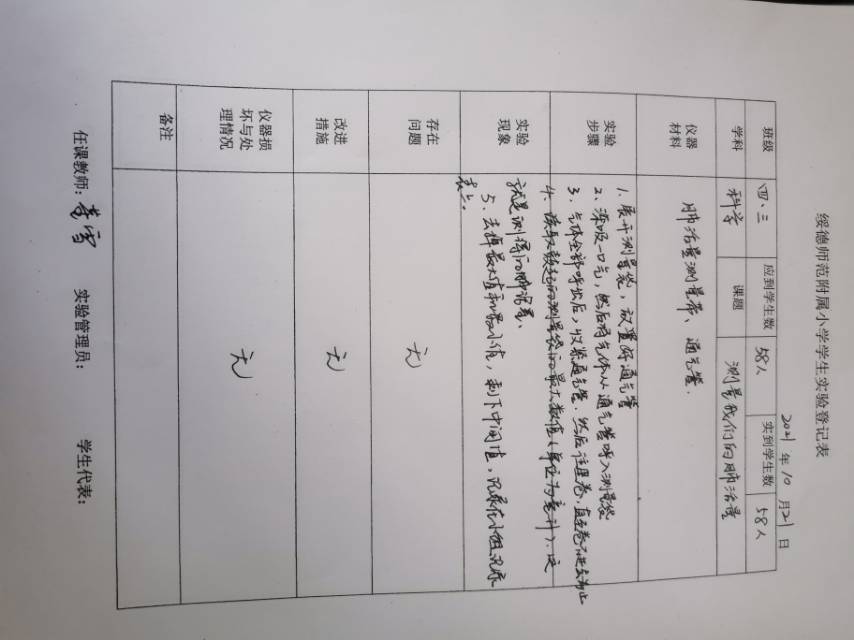 绥德师范附属小学学生实验登记表
2021年10月21日
班级 四.三 应到学生数 58人 实到学生数 58人
学科 科学 课题 测量我们的肺活量
仪器材料 肺活量测量袋、通气管.
实验步骤
1. 展开测量袋，放置好通气管
2. 深吸一口气，然后将气体从通气管呼入测量袋
3. 气体全部呼出后，收紧通气管.然后往里卷，直至卷不动为止
4. 读取卷起的测量袋的最大数值（单位为毫升），这
就是测得的肺活量、
5. 去掉最大值和最小值，剩下中间值，记录在小组记录
表上。
实验现象
存在问题 无
改进措施 无
仪器损坏与处理情况 无
备注
任课教师： 实验管理员： 学生代表：